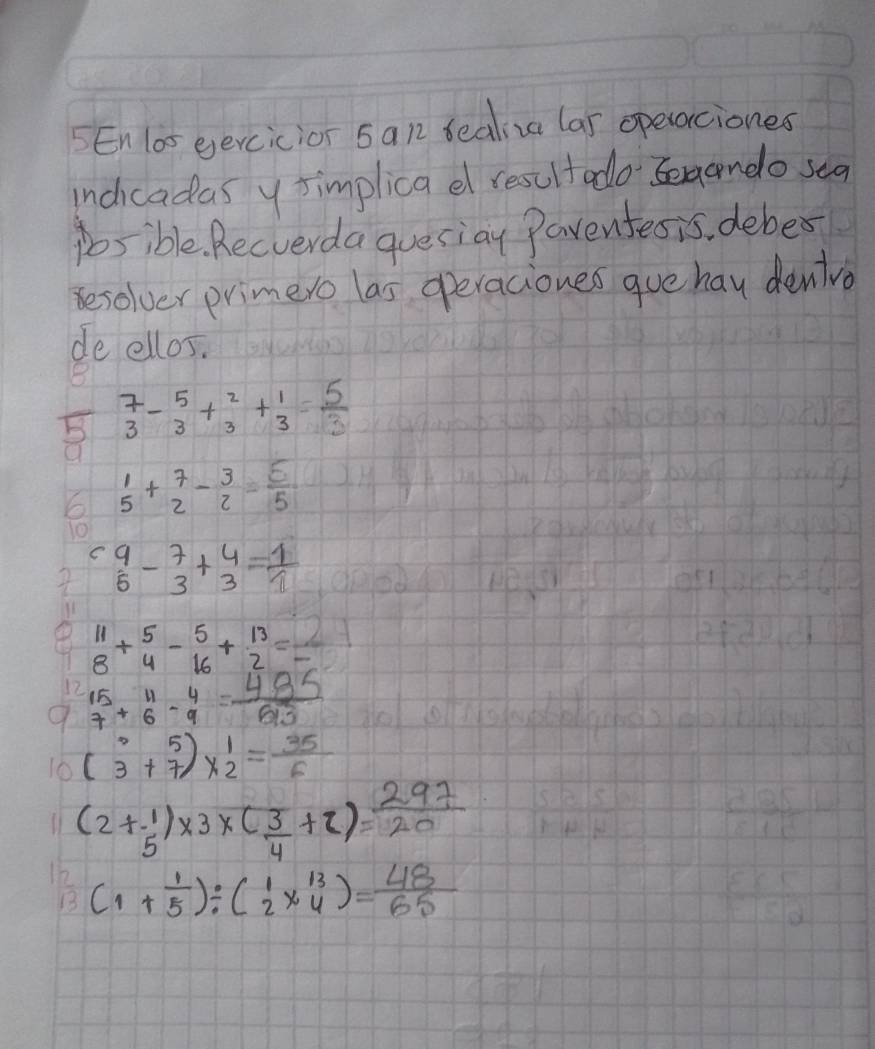 5 En los ejercicios 5 a 12 realiza las operaciones
indicadas y simplica el resultado cuando sea
posible. Recuerda que si ay Parentesis, debes
resolver primero las operaciones que hay dentro
de ellos.
5 7/3 - 5/3 + 2/3 + 1/3 = 5/3
6 1/5 + 7/2 - 3/2 = /5
7 9/6 - 7/3 + 4/3 = 1/1
11/8 + 5/4 - 5/16 + 13/2 =
9 15/7 + 11/6 - 4/9 = 485/
10 ( /3 + 5/7) x 1/2 = 35/6
11 (2 + 1/5) x 3 x (3/4 + 2) = 297/20
12 13 (1 + 1/5) ÷ (1/2 x 13/4) = 48/65